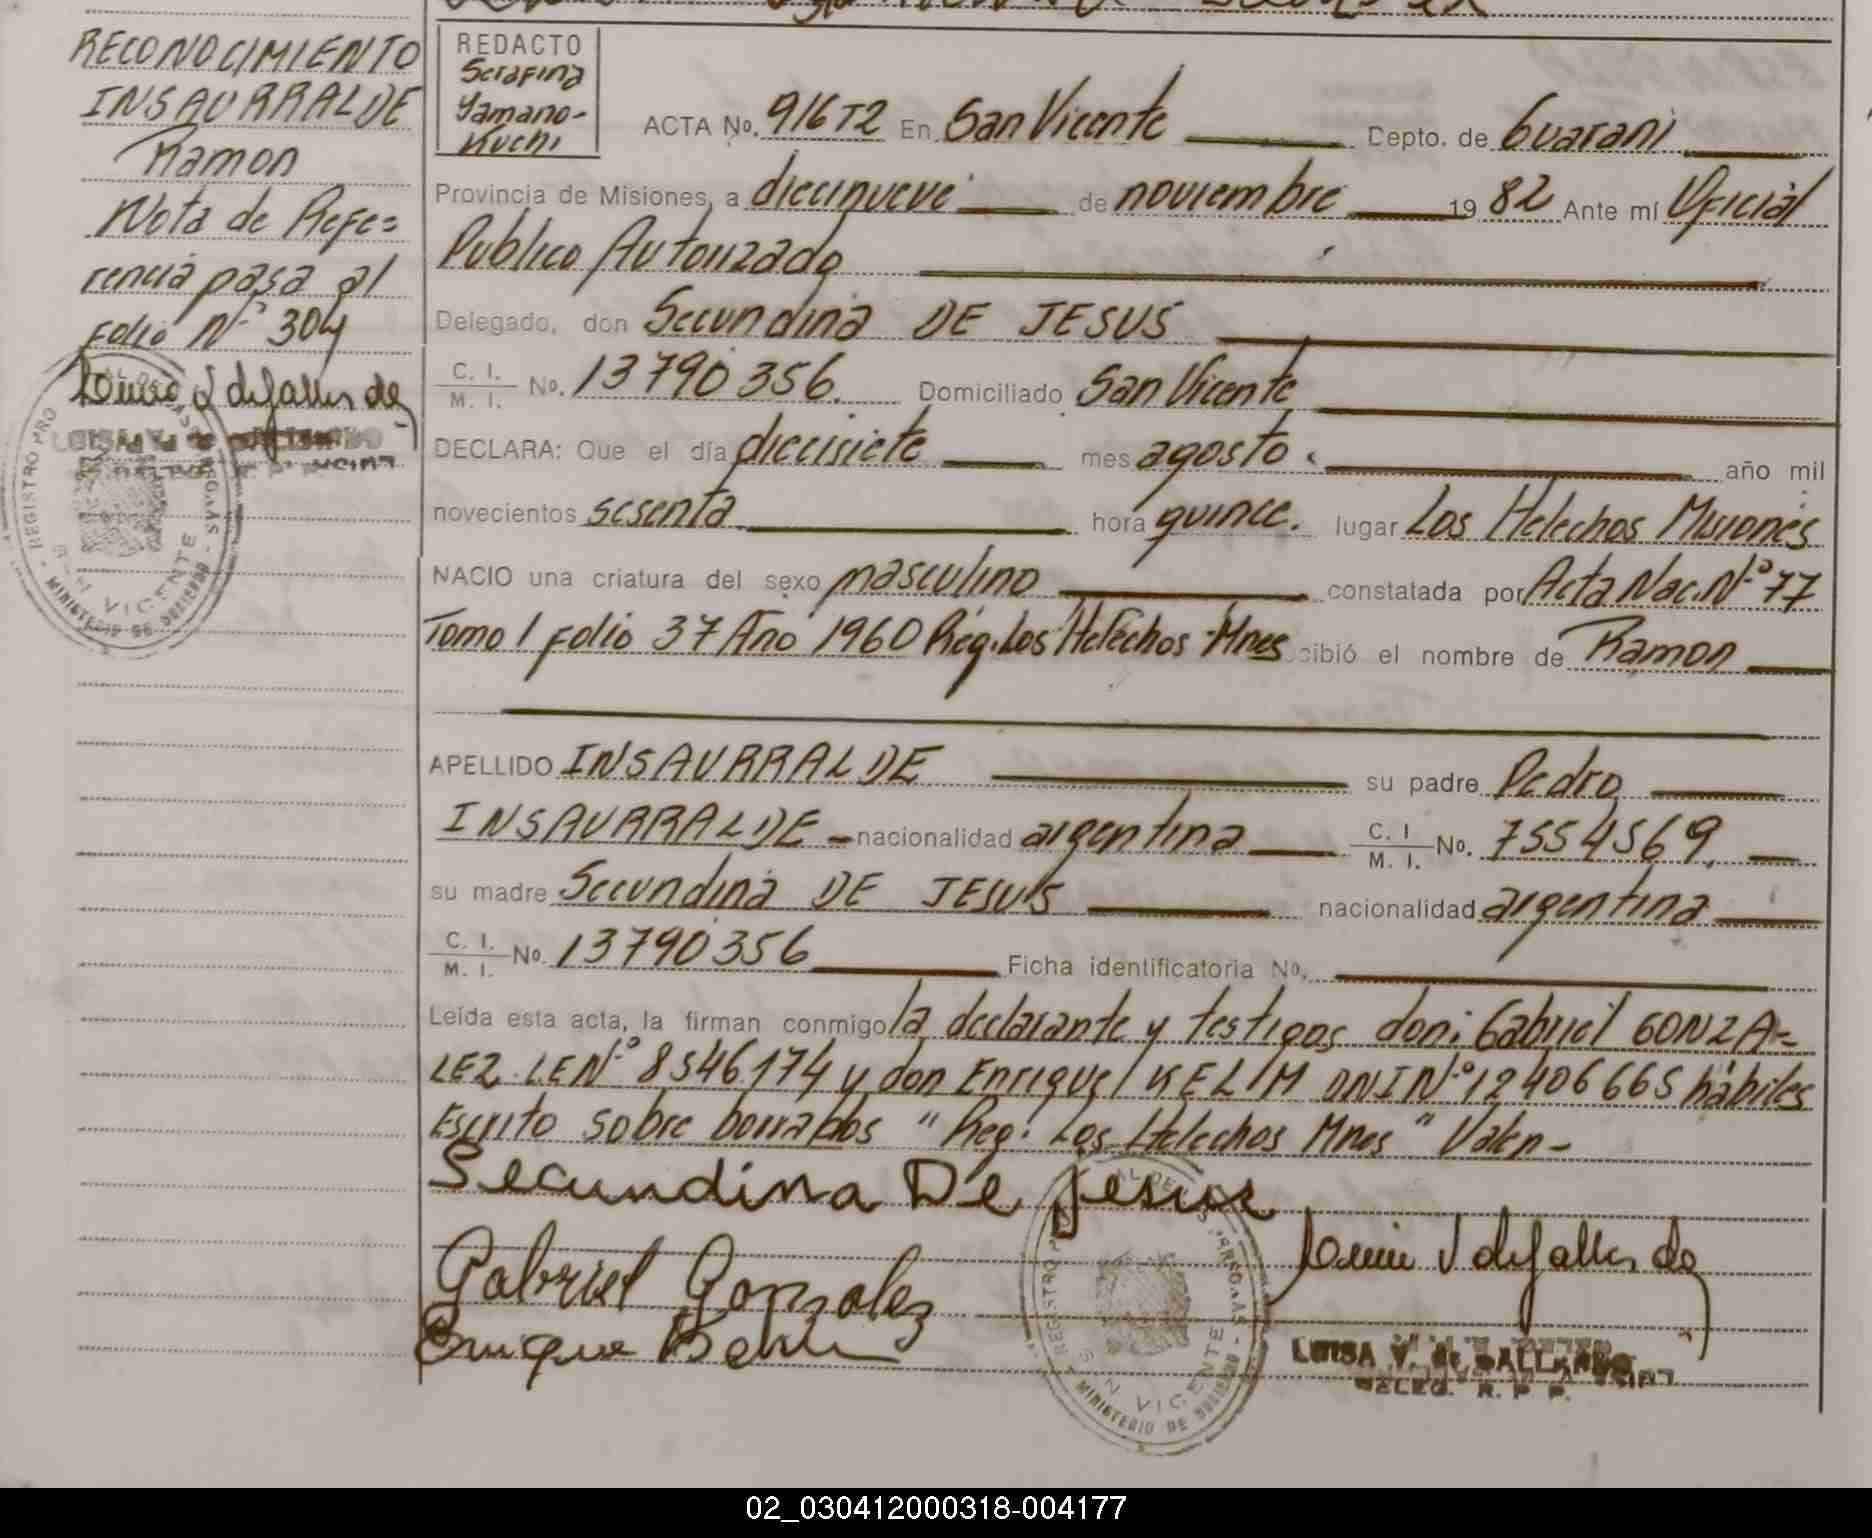 RECONOCIMIENTO
INSAURRALDE
Ramon
Nota de Refe=
rencia pasa al
Folio N-° 304
REGISTRO PRO
VICENTE
MINISTERIO DE GOBIERNO
REDACTO
Serafina
Yamano-
Kuchi
ACTA No. 916 T2 En San Vicente Depto. de Guarani
Provincia de Misiones, a diecinueve de noviembre 19 82 Ante mí Oficial
Publico Autorizado
Delegado, don Secundina DE JESUS
C. I.
M. I. No. 13790356. Domiciliado San Vicente
DECLARA: Que el día diecisiete mes agosto. año mil
novecientos sesenta hora quince. lugar Los Helechos Misiones
NACIO una criatura del sexo masculino constatada por Acta Nac. N-° 77
Tomo 1 Folio 37 Año 1960 Reg. Los Helechos Mnes cibió el nombre de Ramon
APELLIDO INSAURRALDE su padre Pedro
INSAURRALDE - nacionalidad argentina C. I
M. I. No. 7554569.
su madre Secundina DE JESUS nacionalidad argentina
C. I.
M. I. No. 13790356 Ficha identificatoria No.
Leída esta acta, la firman conmigo la declarante y testigos don: Gabriel GONZA=
LEZ LE N-° 8546174 y don Enrique KELIM DNI N-° 12406665 hábiles
Escrito sobre borrados "Reg. Los Helechos Mnes" Valen-
Secundina De Jesus
Gabriel Gonzalez
Enrique
REGISTRO
VICENTE
MINISTERIO DE GOBIERNO
LUISA V. de
DELEG. R. P. P.
02_030412000318-004177